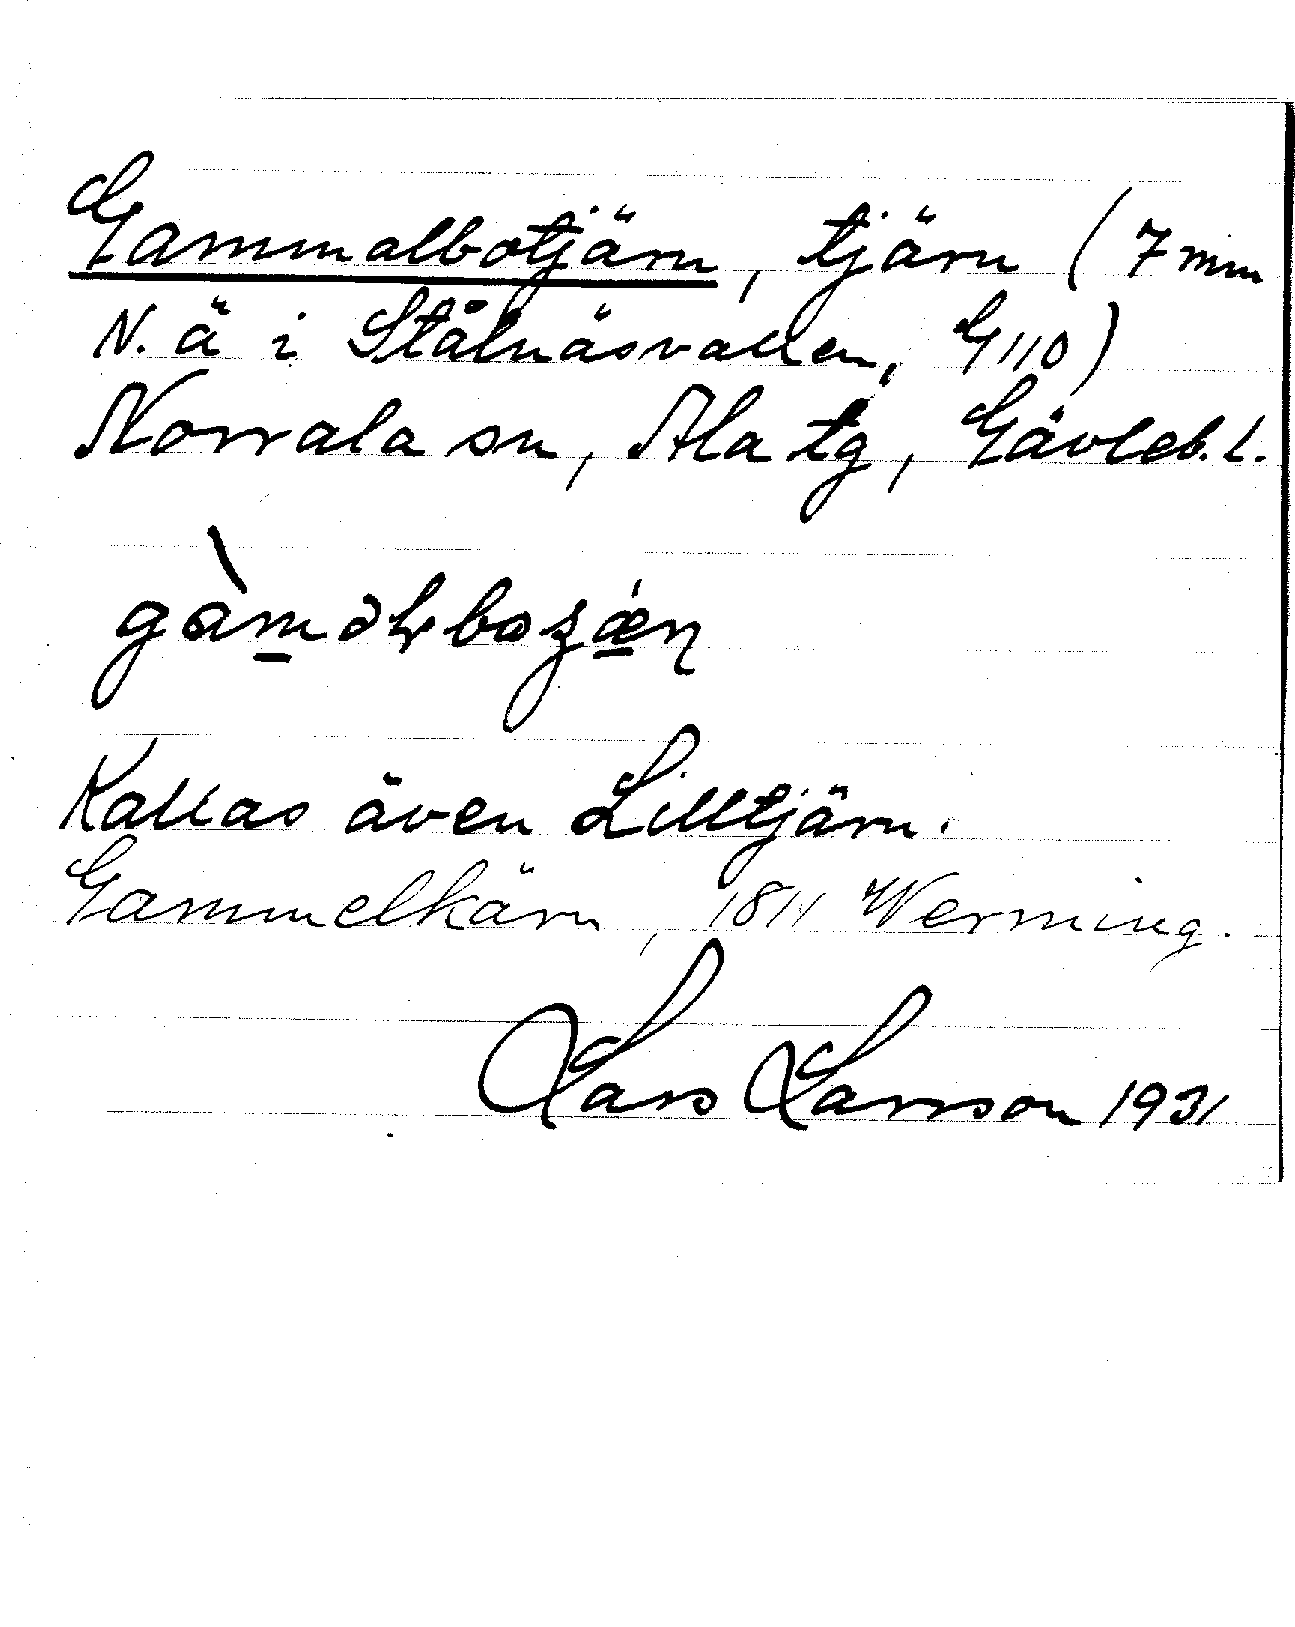 Gammalbotjärn, tjärn (7 mm
N. ä i Stålnäsvallen, G 110)
Norrala sn, Ala tg, Gävleb. l.
Kallas även Lilltjärn.
Gammelkärn, 1811 Werming.
Lars Larsson 1931